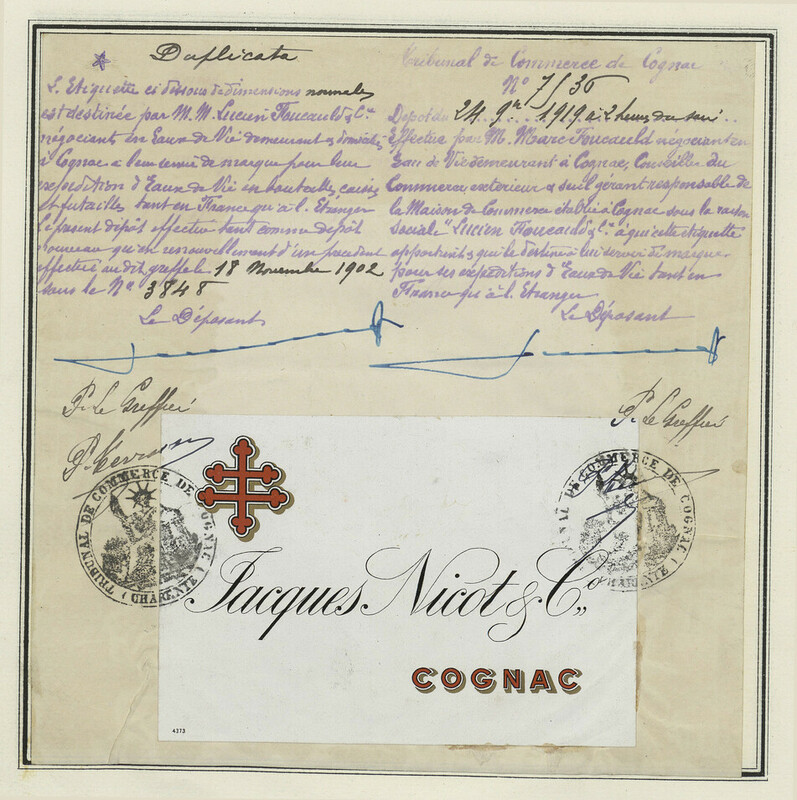 Duplicata
L'Etiquette ci dessous de dimensions normales
est destinée par M.M. Lucien Foucauld & Cie
négociants en Eaux de Vie demeurant & domiciliés
à Cognac a leur servir de marque pour leur
expédition d'Eaux de Vie en bouteilles, caisses
et futailles tant en France qu'à l'Etranger
le présent dépôt effectué tant comme dépôt
nouveau qu'en renouvellement d'un précédent
effectué au dit greffe le 18 Novembre 1902
sous le No 3848
Le Déposant
Tribunal de Commerce de Cognac
No 7/36
Dépôt du 24 9bre 1919 à 2 heures du soir
Effectué par M. Marc Foucauld négociant en
Eau de Vie demeurant à Cognac, Conseiller du
Commerce extérieur & seul gérant responsable de
la Maison de Commerce établie à Cognac sous la raison
sociale Lucien Foucauld & Cie à qui cette étiquette
appartient & qui le destine à lui servir de marque
pour ses expéditions d'Eaux de Vie tant en
France qu'à l'Etranger
Le Déposant
P. Le Greffier
P. Le Greffier
TRIBUNAL DE COMMERCE DE COGNAC (CHARENTE)
TRIBUNAL DE COMMERCE DE COGNAC (CHARENTE)
Jacques Nicot & Co.,
COGNAC
4373